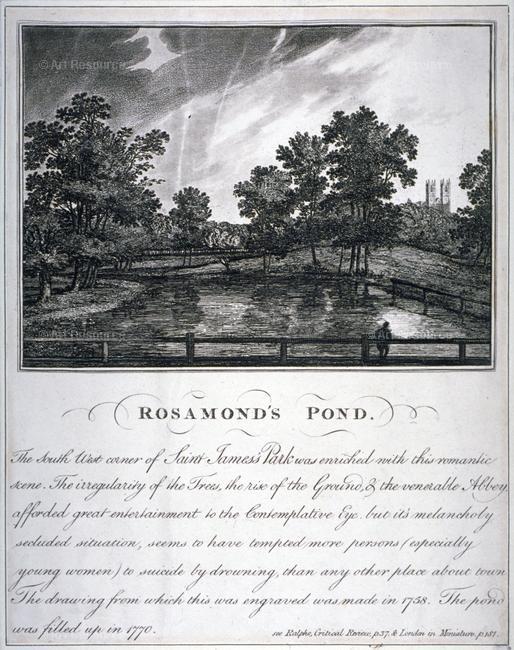 © Art Resource
ROSAMOND'S POND.
The South West corner of Saint James's Park was enriched with this romantic
scene. The irregularity of the Trees, the rise of the Ground, & the venerable Abbey,
afforded great entertainment to the Contemplative Eye. but it's melancholy
secluded situation, seems to have tempted more persons (especially
young women) to suicide by drowning, than any other place about town
The drawing from which this was engraved was made in 1758. The pond
was filled up in 1770.
see Ralphs, Critical Review, p.37. & London in Miniature, p.181.